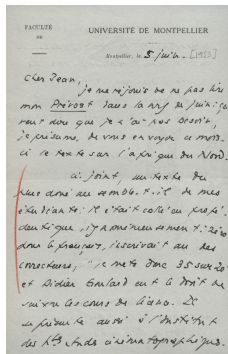 FACULTÉ
DE
UNIVERSITÉ DE MONTPELLIER
Montpellier, le 5 juin [1953]
Cher Jean,
je me réjouis de ne pas lire
mon Prévost dans la nrf de juin: ça
veut dire que je n'ai pas besoin,
je présume, de vous envoyer ce mois-
ci le texte sur l'Afrique du Nord.
ci-joint, un texte du
plus doué au semble-t-il de mes
étudiants: il était collé en propé-
deutique, il y a
pour le français, inscrivait un des
correcteurs; "je mets donc 35 sur 20
et Didier eut le droit de
suivre les cours de licence. Il
se présente aussi à l'Institut
des Htes études cinématographiques.